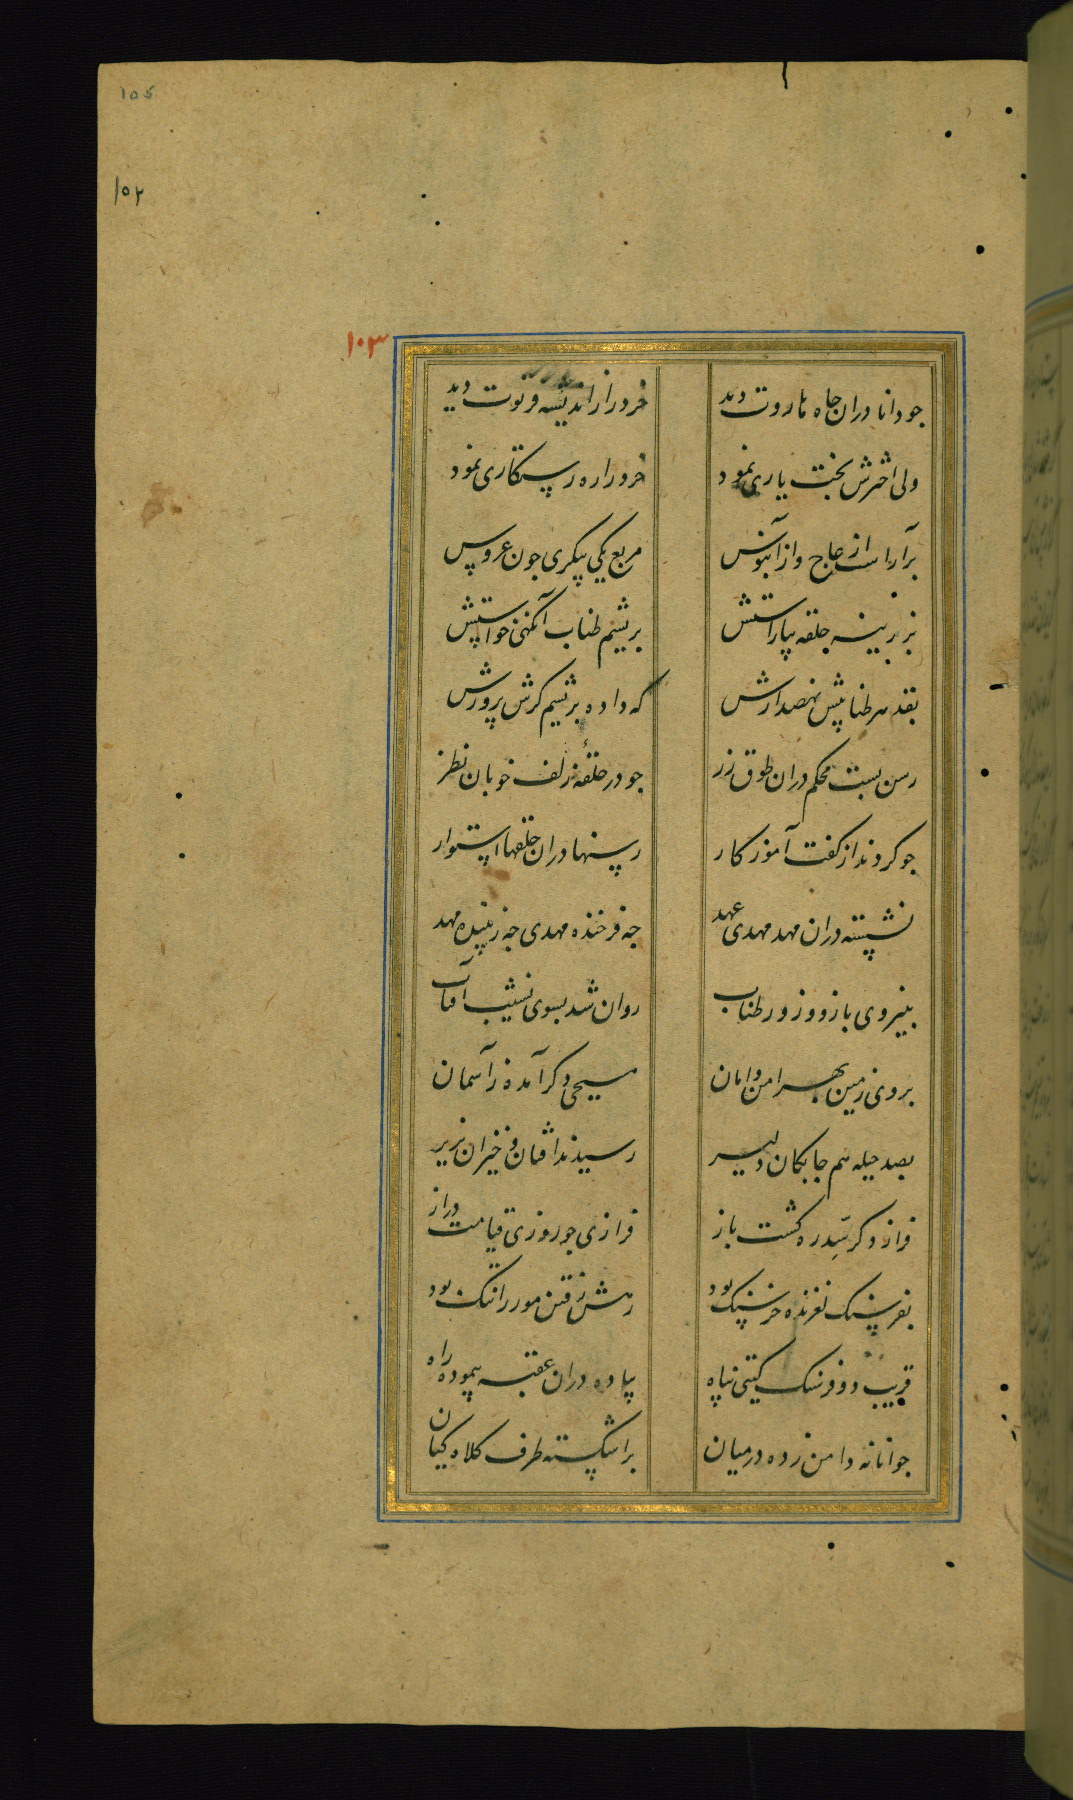 105
۱۵۲
۱۰۳
جو دانا دران چاه ماروت دید خرد را ز اندیشه فرتوت دید
ولی اخترش بخت یاری نمود خرد را ره رستکاری نمود
برآراست از عاج و از آبنوس مربع یکی پیکری جون عروس
بزرینه حلقه بیاراستش بریشم طناب آنکهی خواستش
بقد هر طنابیش نهصد ارش که داده بریشم کرش پرورش
رسن بست محکم دران طوق زر جو در حلقهٔ زلف خوبان نظر
جو کردند از کفت آموزکار رسنها دران حلقها استوار
نشسته دران مهد مهدی عهد جه فرخنده مهدی جه زیبنده مهد
بنیروی بازو و زور طناب روان شد بسوی نشیب آفتاب
بروی زمین بهر امن و امان مسیحی دکر آمد ز آسمان
بصد حیله هم جابکان دلیر رسیدند افتان و خیزان بزیر
فراز دکر سدره کشت باز فرازی جو روز قیامت دراز
بفرسنک لغزنده خرسنک بود رهش رفتن مور را تنک بود
قریب دو فرسنک کیتی پناه پیاده دران عقبه پیموده راه
جوانانه دامن زده در میان براشکسته طرف کلاه کیان